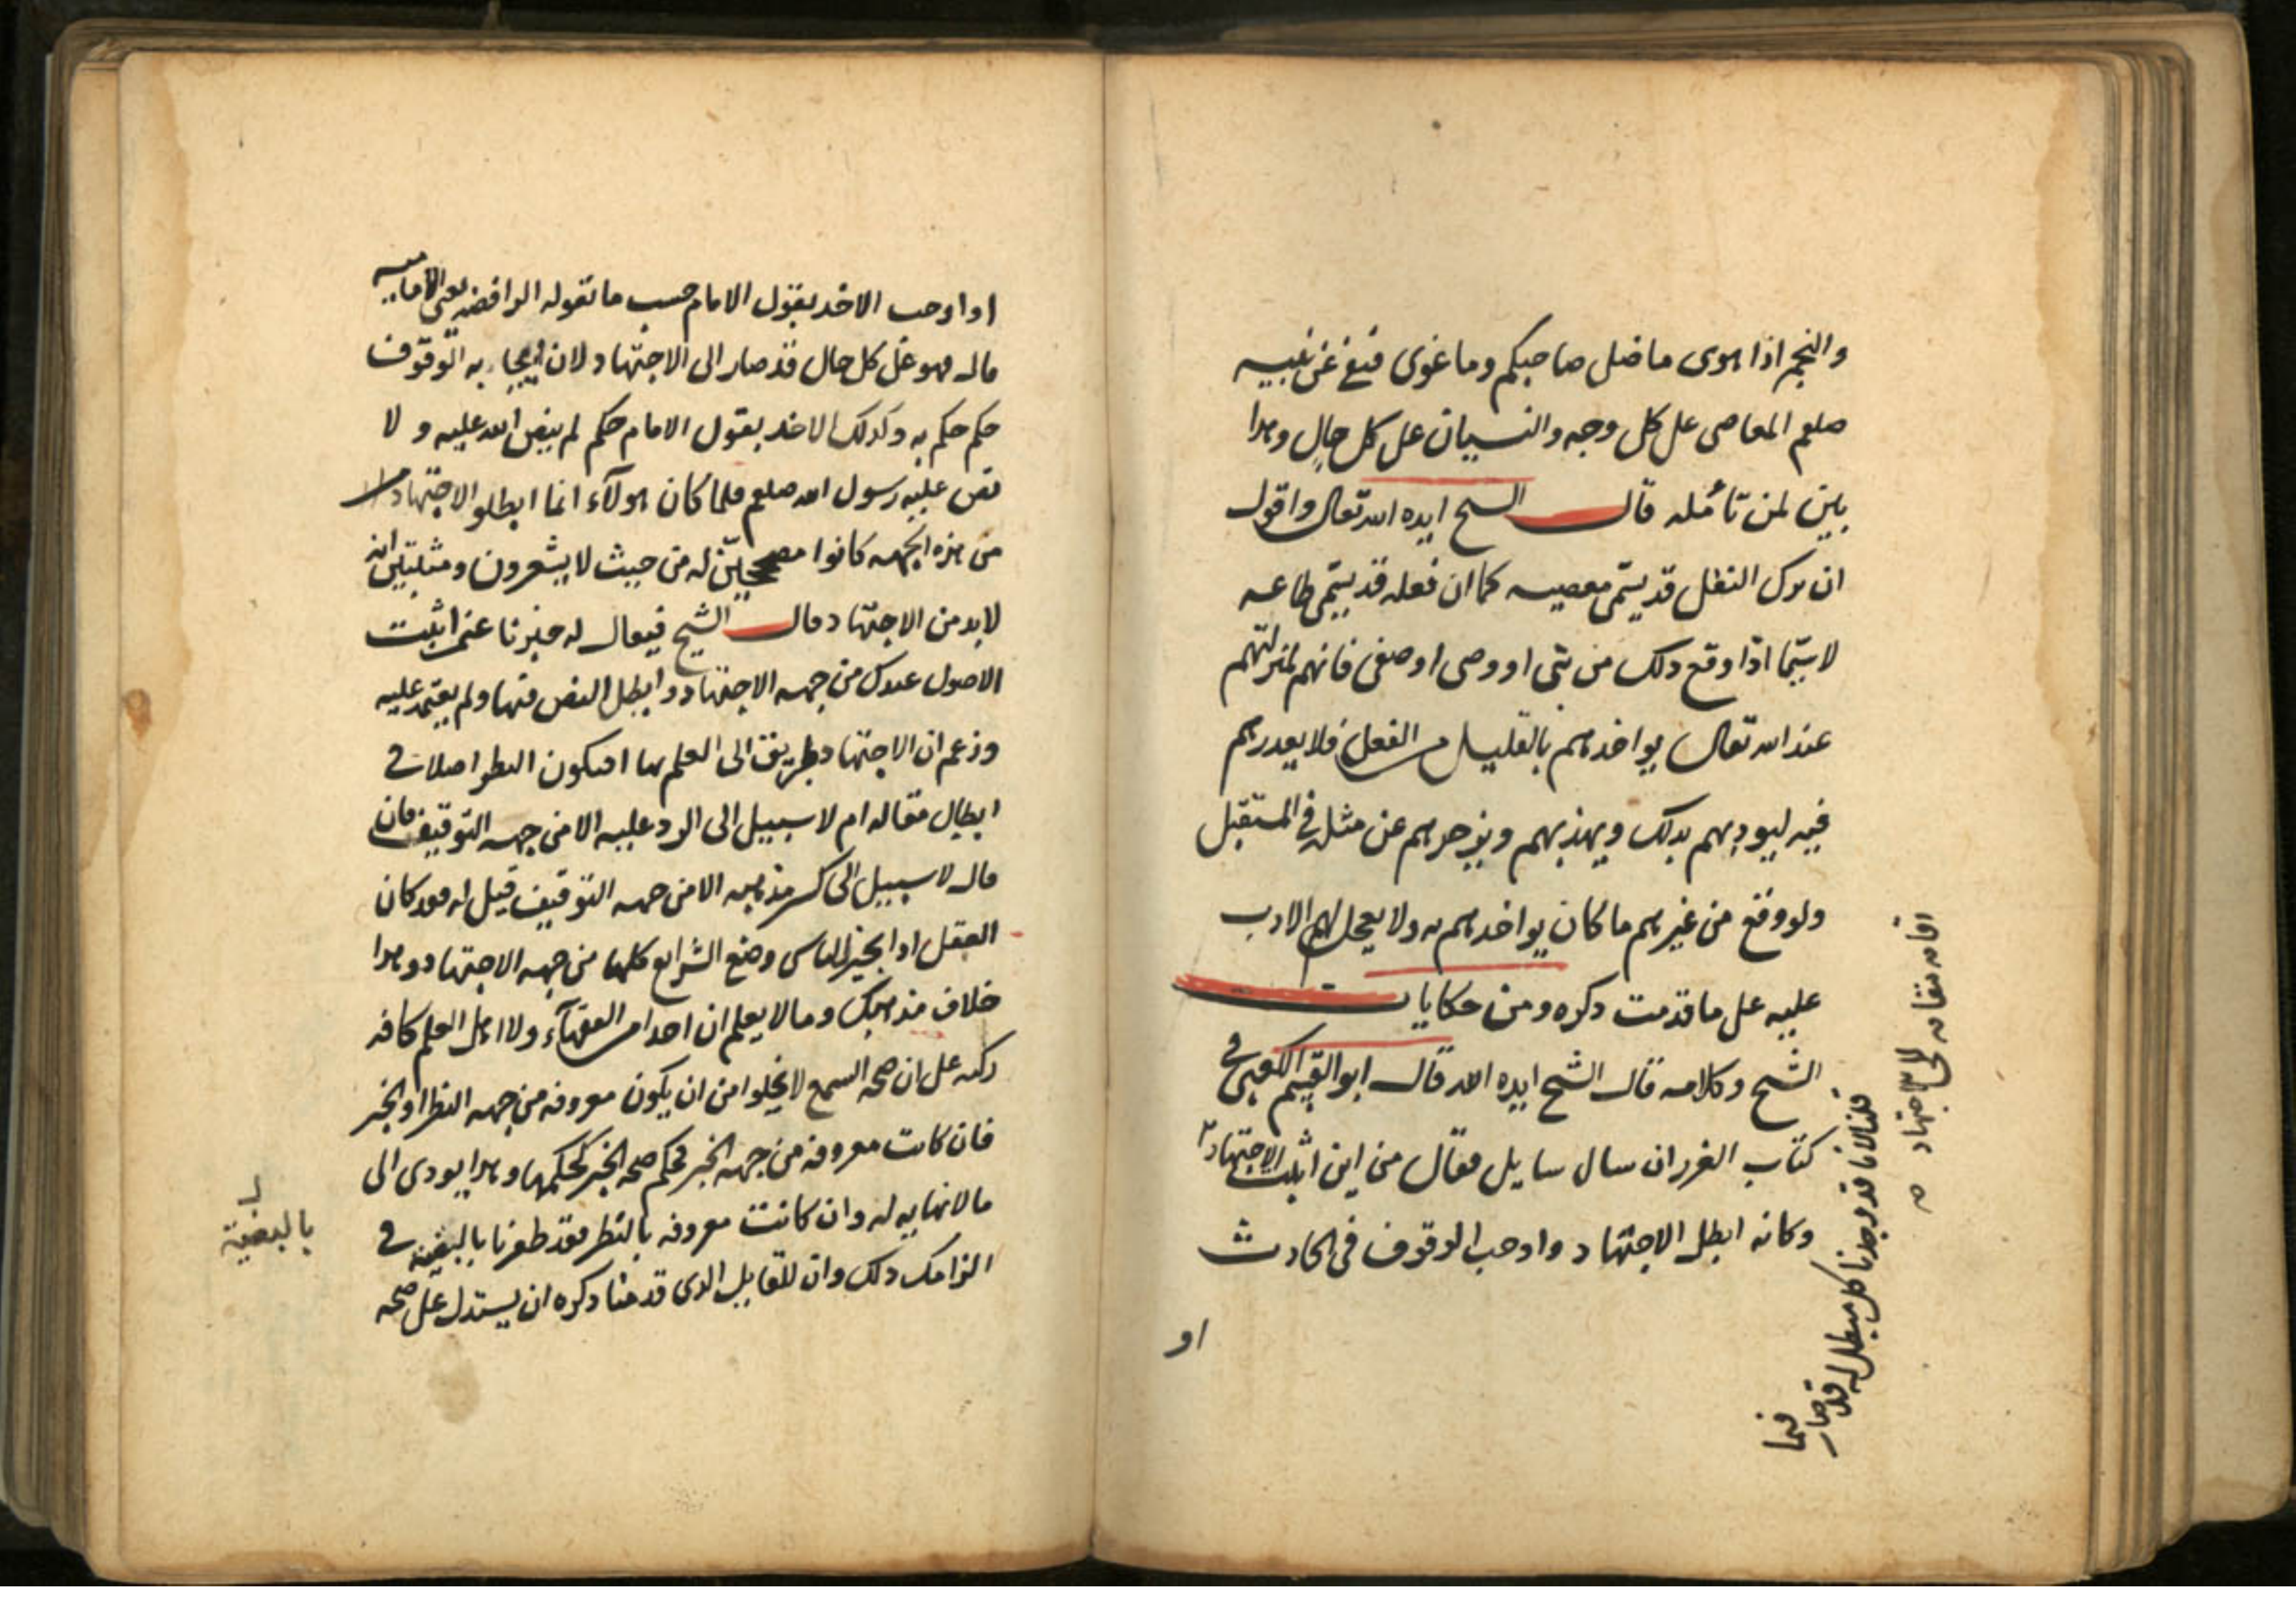 والنجم اذا هوى ما ضل صاحبكم وما غوى فنفى عن نبيه
صلعم المعاصى على كل وجه والنسيان على كل حال وهذا
بين لمن تأمله قال الشيخ ايده الله تعالى واقول
ان ترك النفل قد يسمى معصيه كما ان فعله قد يسمى طاعه
لا سيما اذا وقع ذلك من نبى او وصى او صفى فانهم لمنزلتهم
عند الله تعالى يواخذهم بالقليل من الفعل فلا يعدرهم
فيه ليودبهم بذلك ويهذبهم ويزجرهم عن مثله فى المستقبل
ولو وقع من غيرهم ما كان يواخذهم به ولا يعجل لهم الادب
عليه على ما قدمت ذكره ومن حكايات
الشيخ وكلامه قال الشيخ ايده الله قال ابو القسم الكعبى فى
كتاب الغرر ان سال سايل فقال من اين اثبت الاجتهاد
وكانه ابطل الاجتهاد واوجب الوقوف فى الحادث
او
قلنا لانا قد وجدنا كل مبطل له قد صار
فيما
اقامه مقامه الى الاجتهاد
او اوجب الاخذ بقول الامام حسب ما تقوله الرافضه يعنى الاماميه
قال فهو على كل حال قد صار الى الاجتهاد لان ايجابه التوقوف
حكم حكم به وكذلك الاخذ بقول الامام حكم لم ينص الله عليه ولا
نص عليه رسول الله صلعم فلما كان هولآء انما ابطلوا الاجتهاد
من هذه الجهه كانوا مصححين له من حيث لا يشعرون ومثبتين انه
لا بد من الاجتهاد قال الشيخ فيقال له خبرنا عمن اثبت
الاصول عندك من جهه الاجتهاد وابطل النص فيها ولم يعتمد عليه
وزعم ان الاجتهاد طريق الى العلم بها افيكون النظر اصلا فى
ابطال مقاله ام لا سبيل الى الرد عليه الا من جهه التوقيف فان
قال لا سبيل الى كسر مذهبه الا من جهه التوقيف قيل له فقد كان
العقل اذا يجيز للناس وضع الشرايع كلها من جهه الاجتهاد وهذا
خلاف مذهبك وما لا يعلم ان احدا من الفقهآء ولا اهل العلم كافه
ركبه على ان صحه السمع لا يخلوا من ان يكون معروفه من جهه النظر او الخبر
فان كانت معروفه من جهه الخبر فحكم صحه الخبر كحكمها وهذا يودى الى
ما لا نهايه له وان كانت معروفه بالنظر فقد ظفرنا بالبغيه فى
الزامك ذلك وان للقايل الذى قدمنا ذكره ان يستدل على صحه
بالبغية